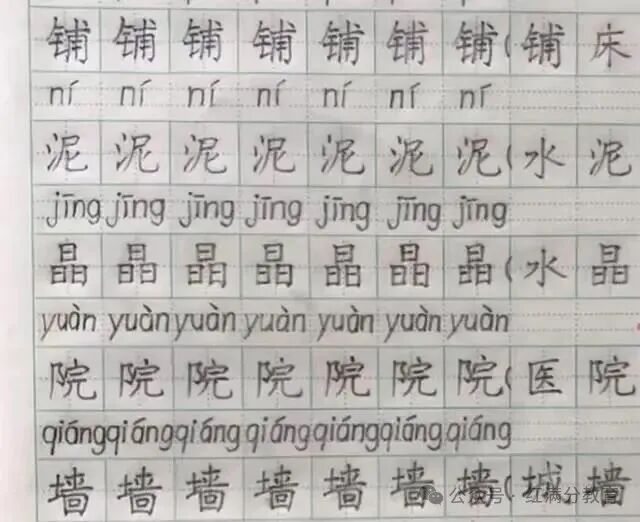 铺 铺 铺 铺 铺 铺 铺 ( 铺 床
ní ní ní ní ní ní ní
泥 泥 泥 泥 泥 泥 泥 ( 水 泥
jīng jīng jīng jīng jīng jīng jīng
晶 晶 晶 晶 晶 晶 晶 ( 水 晶
yuàn yuàn yuàn yuàn yuàn yuàn yuàn
院 院 院 院 院 院 院 ( 医 院
qiáng qiáng qiáng qiáng qiáng qiáng qiáng
墙 墙 墙 墙 墙 墙 墙 ( 城 墙
公众号 · 红满分教育